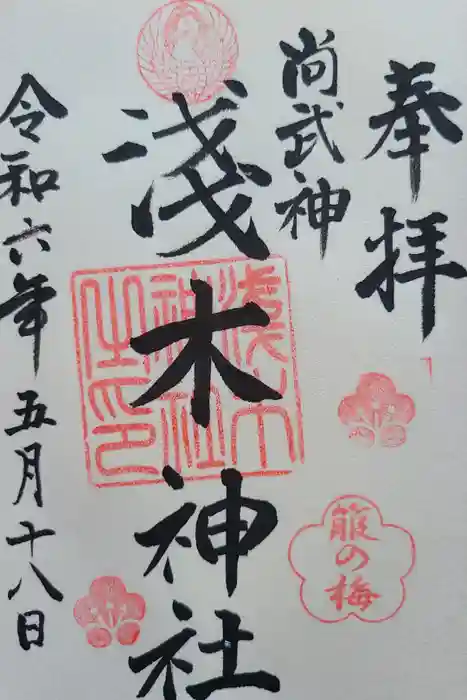 奉拝
尚武神
淺木神社
令和六年五月十八日
淺木
神社
之印
箙の梅